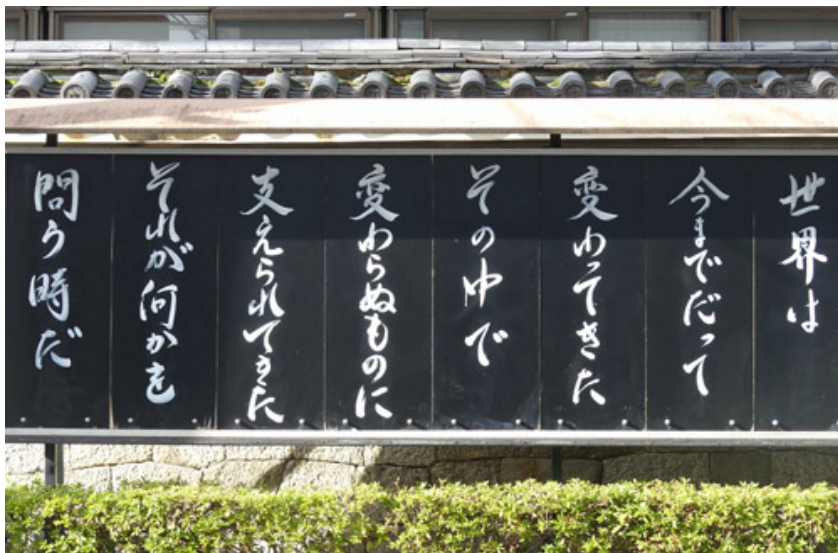 世界は
今までだって
変わってきた
その中で
変わらぬものに
支えられてきた
それが何かを
問う時だ